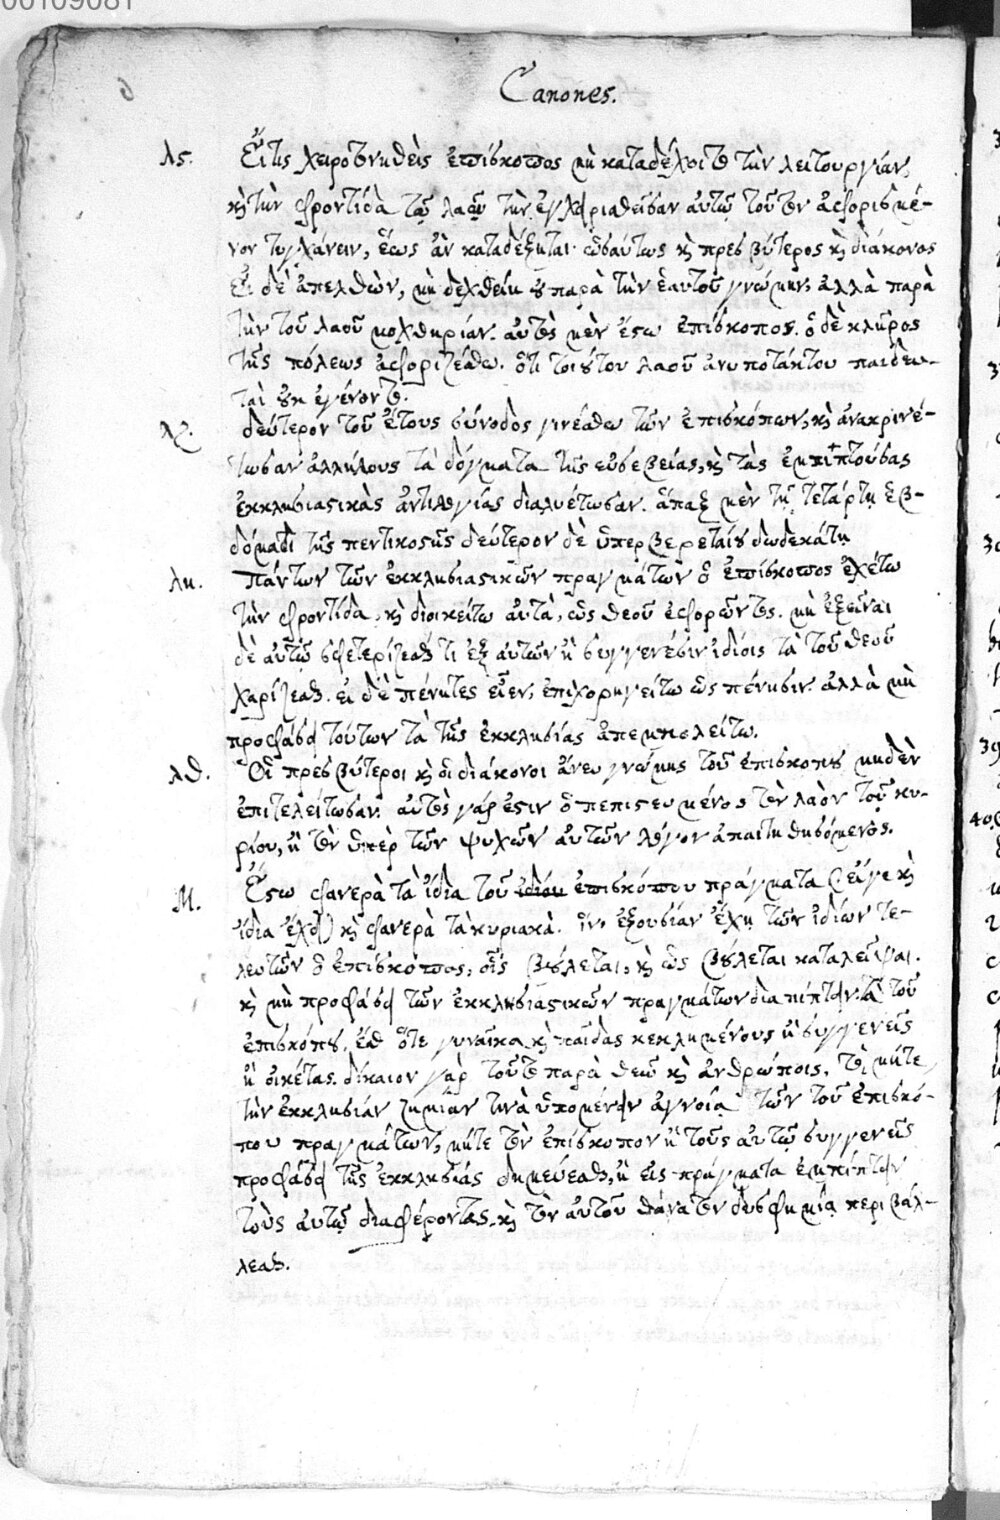 00109081
6
Canones.
λς. Εἴ τις χειροτονηθεὶς ἐπίσκοπος μὴ καταδέχοιτο τὴν λειτουργίαν,
κὴ τὴν φροντίδα τοῦ λαοῦ τὴν ἐγχειρισθεῖσαν αὐτῷ τοῦτον ἀφορισμέ-
νον τυγχάνειν, ἕως ἂν καταδέξηται· ὡσαύτως κὴ πρεσβύτερος κὴ διάκονος
Εἰ δὲ ἀπελθὼν, μὴ δεχθείη οὐ παρὰ τὴν ἑαυτοῦ γνώμην. ἀλλὰ παρὰ
τὴν τοῦ λαοῦ μοχθηρίαν. αὐτὸς μὲν ἔστω ἐπίσκοπος. ὁ δὲ κλῆρος
τῆς πόλεως ἀφοριζέσθω. ὅτι τοιούτου λαοῦ ἀνυποτάκτου παιδευ-
ταὶ οὐκ ἐγένοντο.
λζ. δεύτερον τοῦ ἔτους σύνοδος γινέσθω τῶν ἐπισκόπων, κὴ ἀνακρινέ-
τωσαν ἀλλήλους τὰ δόγματα τῆς εὐσεβείας, κὴ τὰς ἐμπιπτούσας
ἐκκλησιαστικὰς ἀντιλογίας διαλυέτωσαν. ἅπαξ μὲν τῇ τετάρτῃ ἑβ-
δόμαδι τῆς πεντικοστῆς δεύτερον δὲ ὑπερβερεταίου δωδεκάτῃ
λη. Πάντων τῶν ἐκκλησιαστικῶν πραγμάτων ὁ ἐπίσκοπος ἐχέτω
τὴν φροντίδα, κὴ διοικείτω αὐτὰ, ὡς θεοῦ ἐφορῶντος. μὴ ἐξεῖναι
δὲ αὐτῷ σφετερίζεσθαι τι ἐξ αὐτῶν ἢ συγγενέσιν ἰδίοις τὰ τοῦ θεοῦ
χαρίζεσθαι. εἰ δὲ πένητες εἶεν, ἐπιχορηγείτω ὡς πένησιν. ἀλλὰ μὴ
προφάσει τούτων τὰ τῆς ἐκκλησίας ἀπεμπολείτω.
λθ. Οἱ πρεσβύτεροι κὴ οἱ διάκονοι ἄνευ γνώμης τοῦ ἐπισκόπου μηδὲν
ἐπιτελείτωσαν. αὐτὸς γάρ ἐστιν ὁ πεπιστευμένος τὸν λαὸν τοῦ κυ-
ρίου, κὴ τὸν ὑπὲρ τῶν ψυχῶν αὐτῶν λόγον ἀπαιτηθησόμενος.
Μ. Ἔστω φανερὰ τὰ ἴδια τοῦ ἐπισκόπου πράγματα (εἴγε κὴ
ἴδια ἔχει) κὴ φανερὰ τὰ κυριακά. ἵν' ἐξουσίαν ἔχῃ τῶν ἰδίων τε-
λευτῶν ὁ ἐπίσκοπος, οἷς βούλεται, κὴ ὡς βούλεται καταλεῖψαι.
κὴ μὴ προφάσει τῶν ἐκκλησιαστικῶν πραγμάτων διαπίπτειν τὰ τοῦ
ἐπισκόπου, ἔσθ' ὅτε γυναῖκα κὴ παῖδας κεκλημένους ἢ συγγενεῖς
ἢ οἰκέτας. δίκαιον γὰρ τοῦτο παρὰ θεῷ κὴ ἀνθρώποις, τὸ μήτε
τὴν ἐκκλησίαν ζημίαν τινὰ ὑπομένειν ἀγνοίᾳ τῶν τοῦ ἐπισκό-
που πραγμάτων, μήτε τὸν ἐπίσκοπον ἢ τοὺς αὐτοῦ συγγενεῖς
προφάσει τῆς ἐκκλησίας δημεύεσθαι, ἢ εἰς πράγματα ἐμπίπτειν
τοὺς αὐτῷ διαφέροντας, κὴ τὸν αὐτοῦ θάνατον δυσφημίᾳ περιβάλ-
λεσθαι.